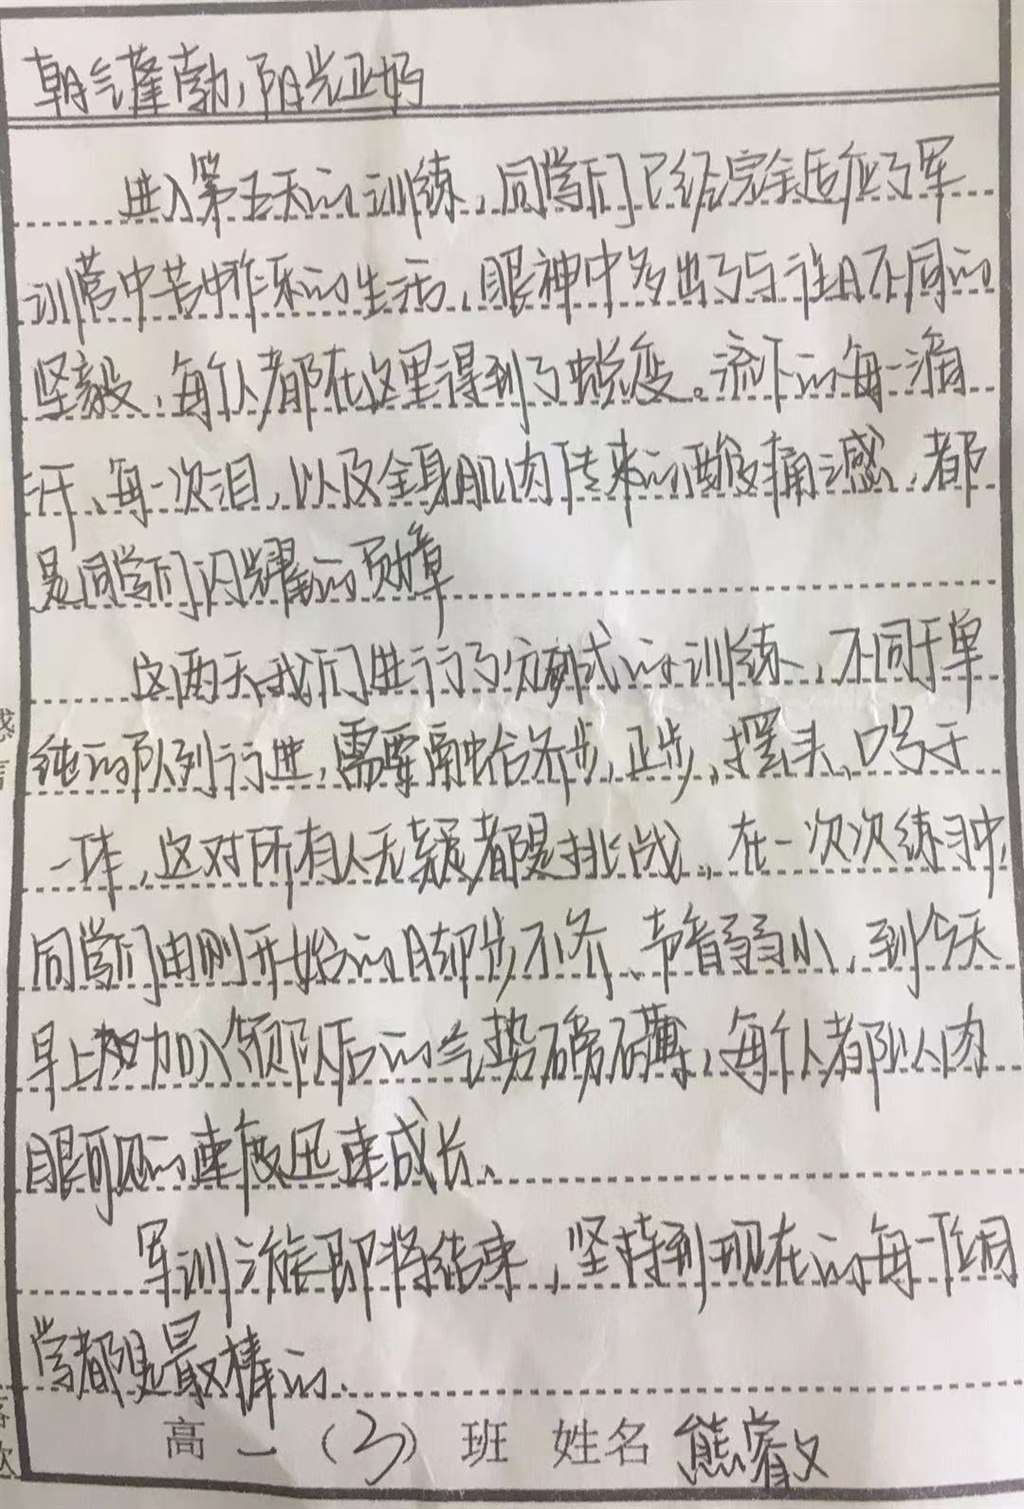 朝气蓬勃,阳光正好
进入第五天的训练,同学们已经完全适应了军
训营中苦中作乐的生活,眼神中多出了与往日不同的
坚毅,每个人都在这里得到了蜕变。流下的每一滴
汗、每一次泪,以及全身肌肉传来的酸痛之感,都
是同学们闪耀的勋章
这两天我们进行了分列式的训练,不同于单
纯的队列行进,需要融合齐步、正步、摆头、口号于
一体,这对所有人无疑都是挑战。在一次次练习中,
同学们由刚开始的脚步不齐、声音弱小,到今天
早上加入领队后的气势磅礴,每个人都以肉
眼可见的速度迅速成长、
军训之旅即将结束,坚持到现在的每一位同
学都是最棒的、
高一(3)班 姓名 熊睿